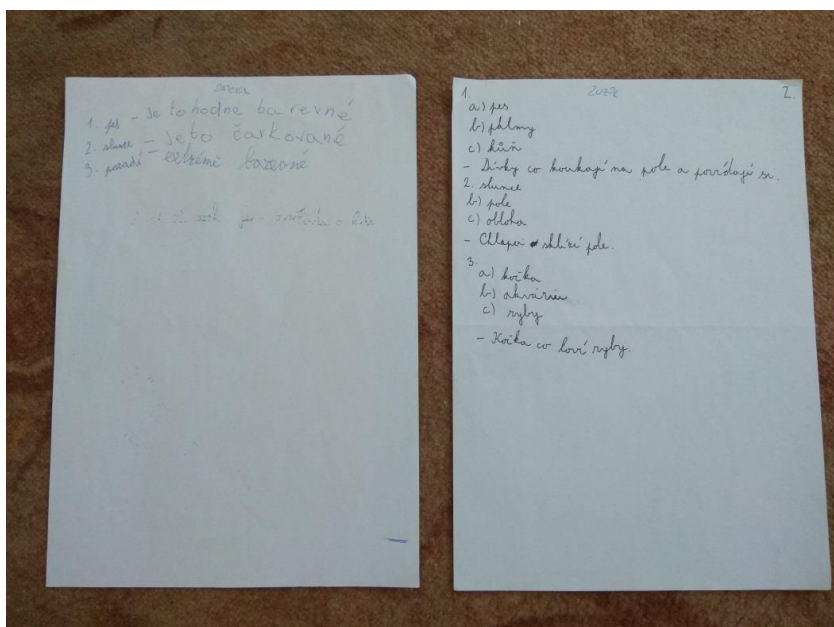 1. pes - Je to hodne barevné
2. slunce - Je to čarkované
3. pozadí - extrémě barevné
1. 2.
a) pes
b) palmy
c) kůň
- Dívky co koukají na pole a povídají si.
2. slunce
b) pole
c) obloha
- Chlapec sklízí pole.
3.
a) kočka
b) akvárium
c) ryby
- Kočka co loví ryby.